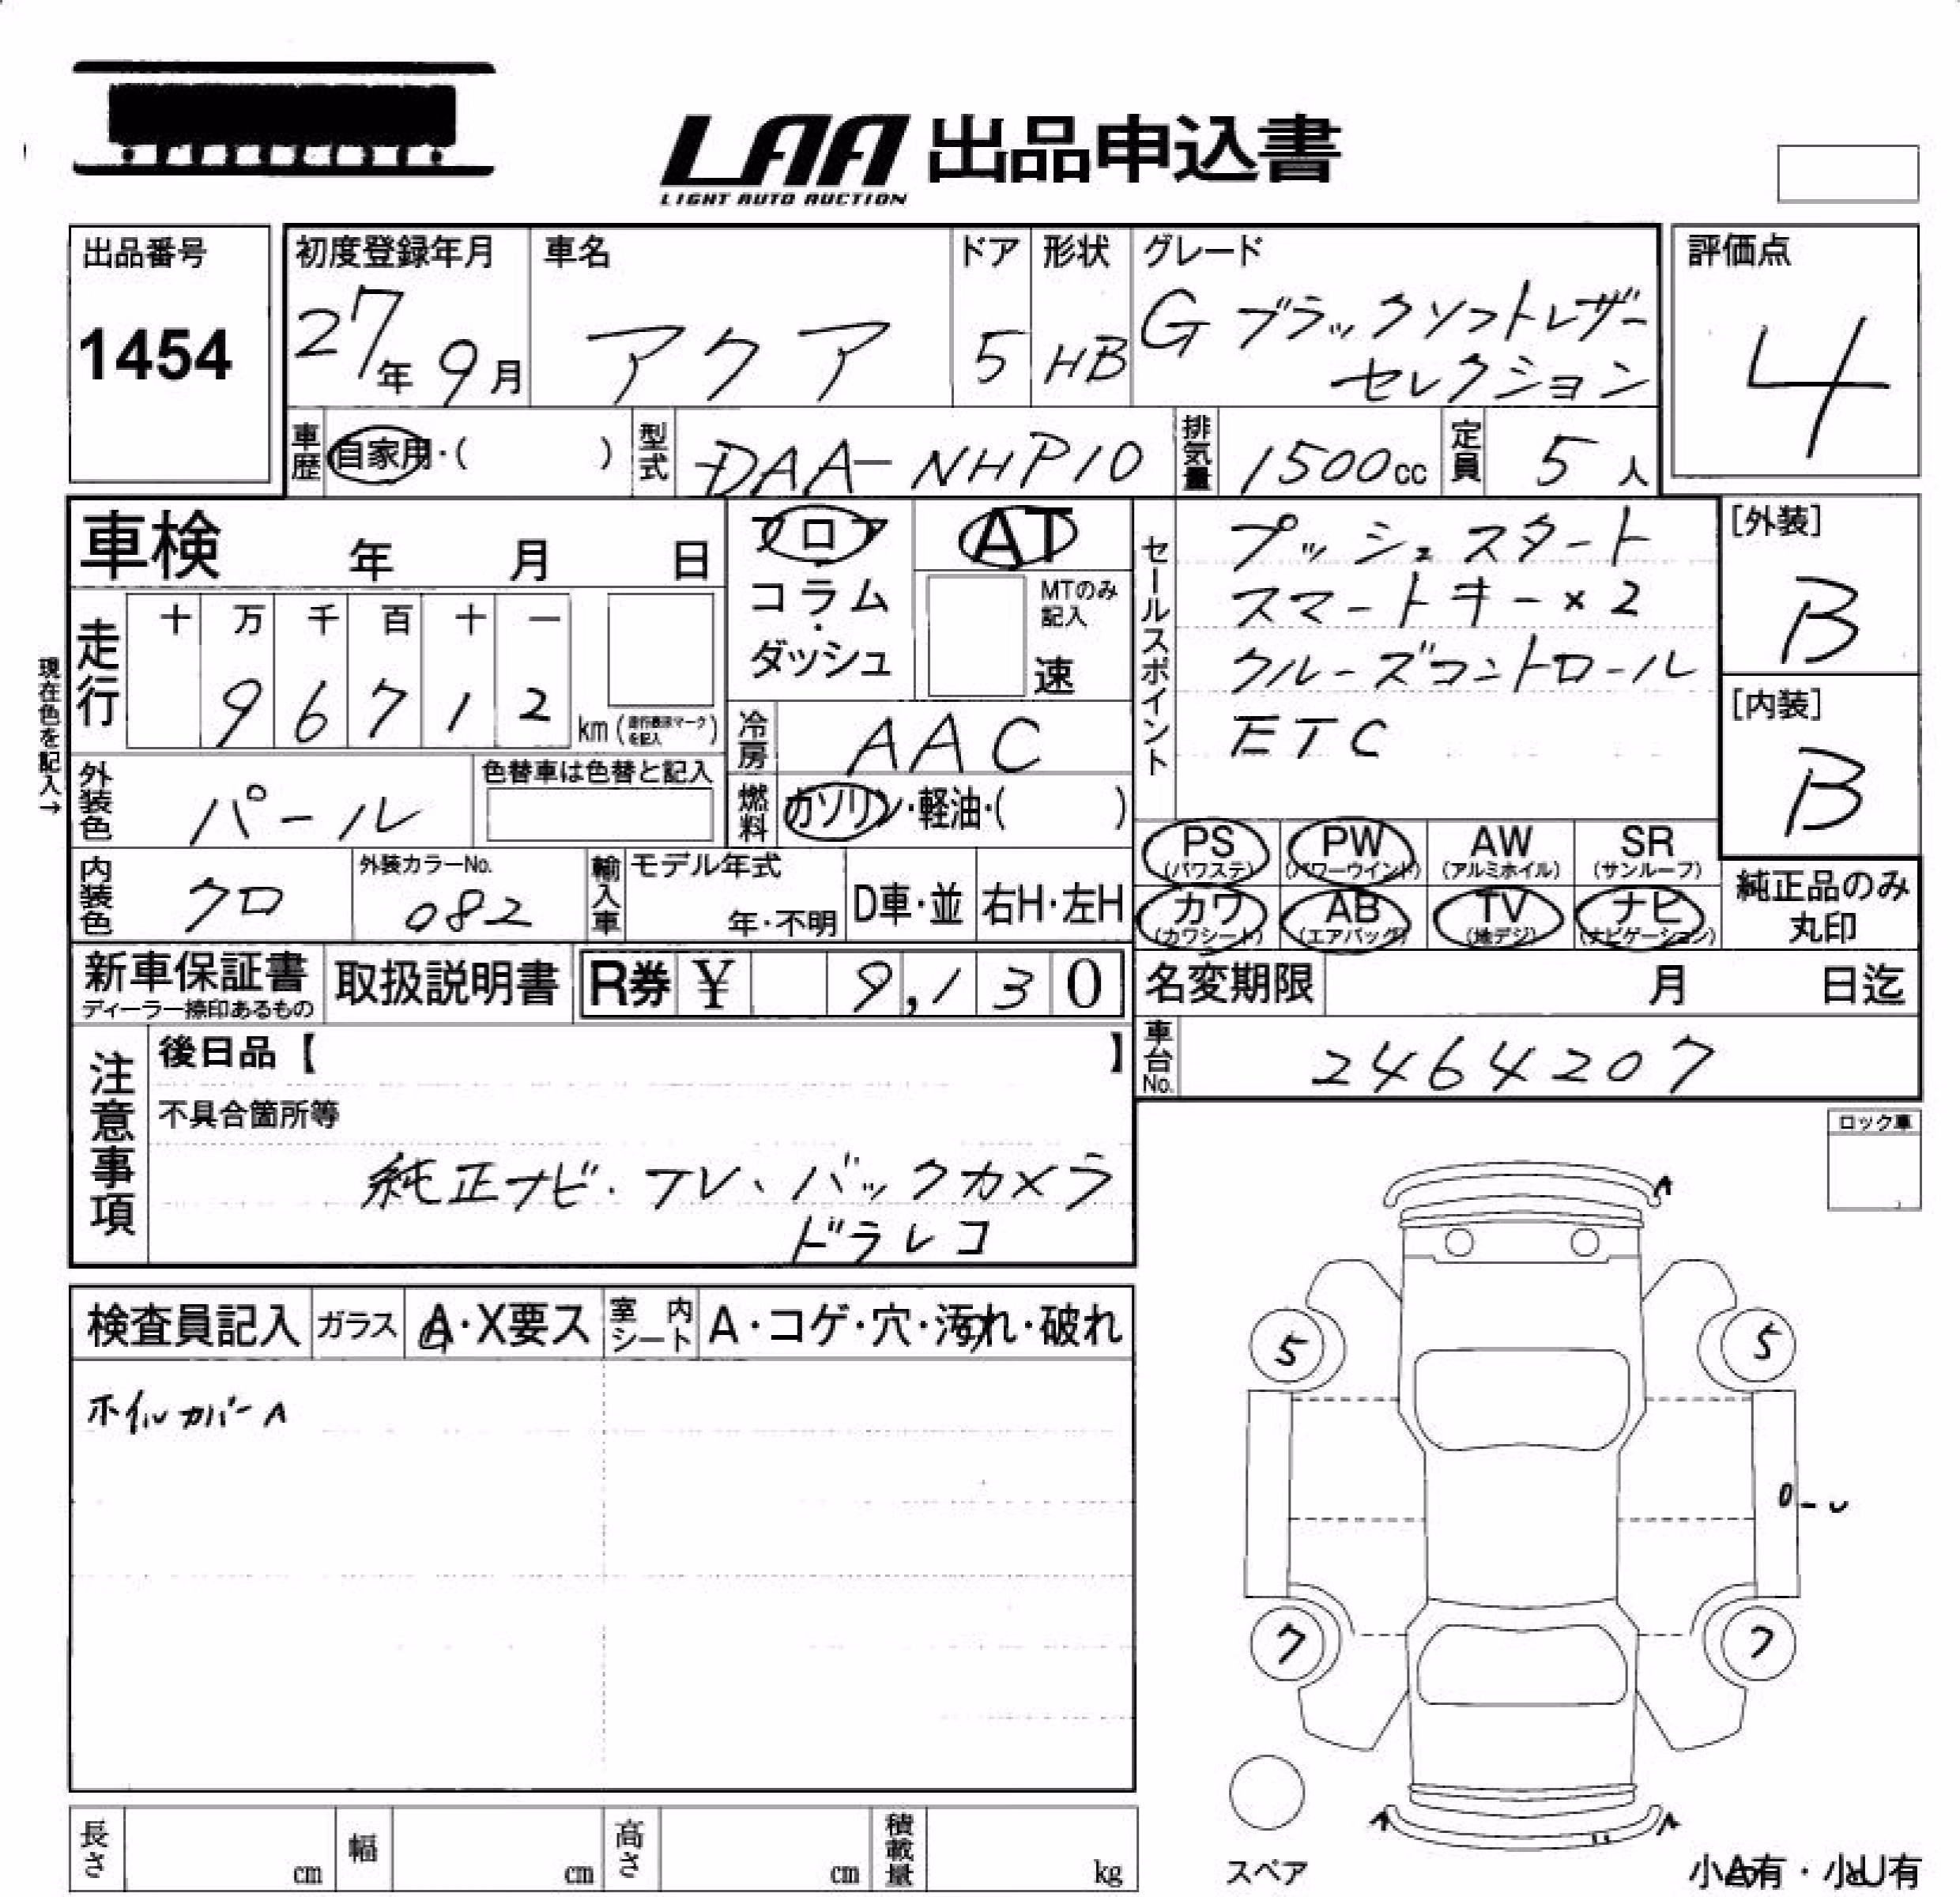 LAA 出品申込書
LIGHT AUTO AUCTION
出品番号
1454
初度登録年月
27年 9月
車名
アクア
ドア
5
形状
HB
グレード
G ブラックソフトレザー
セレクション
評価点
4
車歴 自家用・( )
型式 DAA-NHP10
排気量 1500cc
定員 5人
車検 年 月 日
フロア
コラム
・
ダッシュ
AT
MTのみ
記入
速
セールスポイント
プッシュスタート
スマートキー×2
クルーズコントロール
ETC
[外装]
B
[内装]
B
現在色を記入→
走行
十 万 千 百 十 一
9 6 7 1 2 km (走行表示マークを記入)
冷房 AAC
燃料 ガソリン・軽油・( )
外装色 パール
色替車は色替と記入
PS (パワステ)
PW (パワーウインド)
AW (アルミホイル)
SR (サンルーフ)
カワ (カワシート)
AB (エアバッグ)
TV (地デジ)
ナビ (ナビゲーション)
純正品のみ
丸印
内装色 クロ
外装カラーNo.
082
輸入車
モデル年式
年・不明
D車・並
右H・左H
新車保証書
ディーラー捺印あるもの
取扱説明書
R券 ¥ 9,130
名変期限 月 日迄
車台No. 2464207
注意事項
後日品【 】
不具合箇所等
純正ナビ・TV、バックカメラ
ドラレコ
ロック車
検査員記入
ガラス A・X要ス
室内シート A・コゲ・穴・汚れ・破れ
ホイルカバーA
A
5 5
7 7
A A
スペア
小A有・小U有
長さ cm
幅 cm
高さ cm
積載量 kg